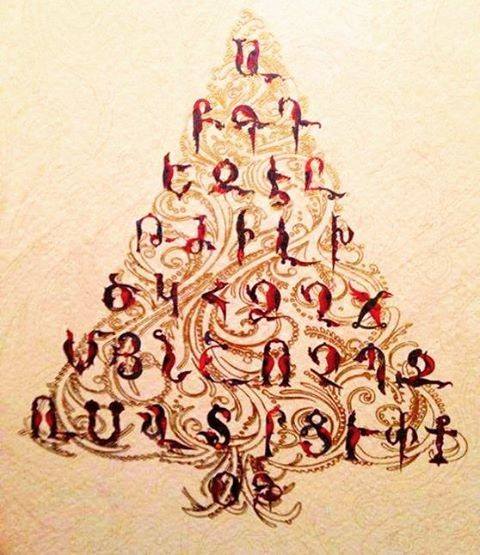 Ա
ԲԳԴ
ԵԶԷԸ
ԹԺԻԼԽ
ԾԿՀՁՂՃ
ՄՅՆՇՈՉՊՋ
ՌՍՎՏՐՑՒՓՔ
ՕՖ